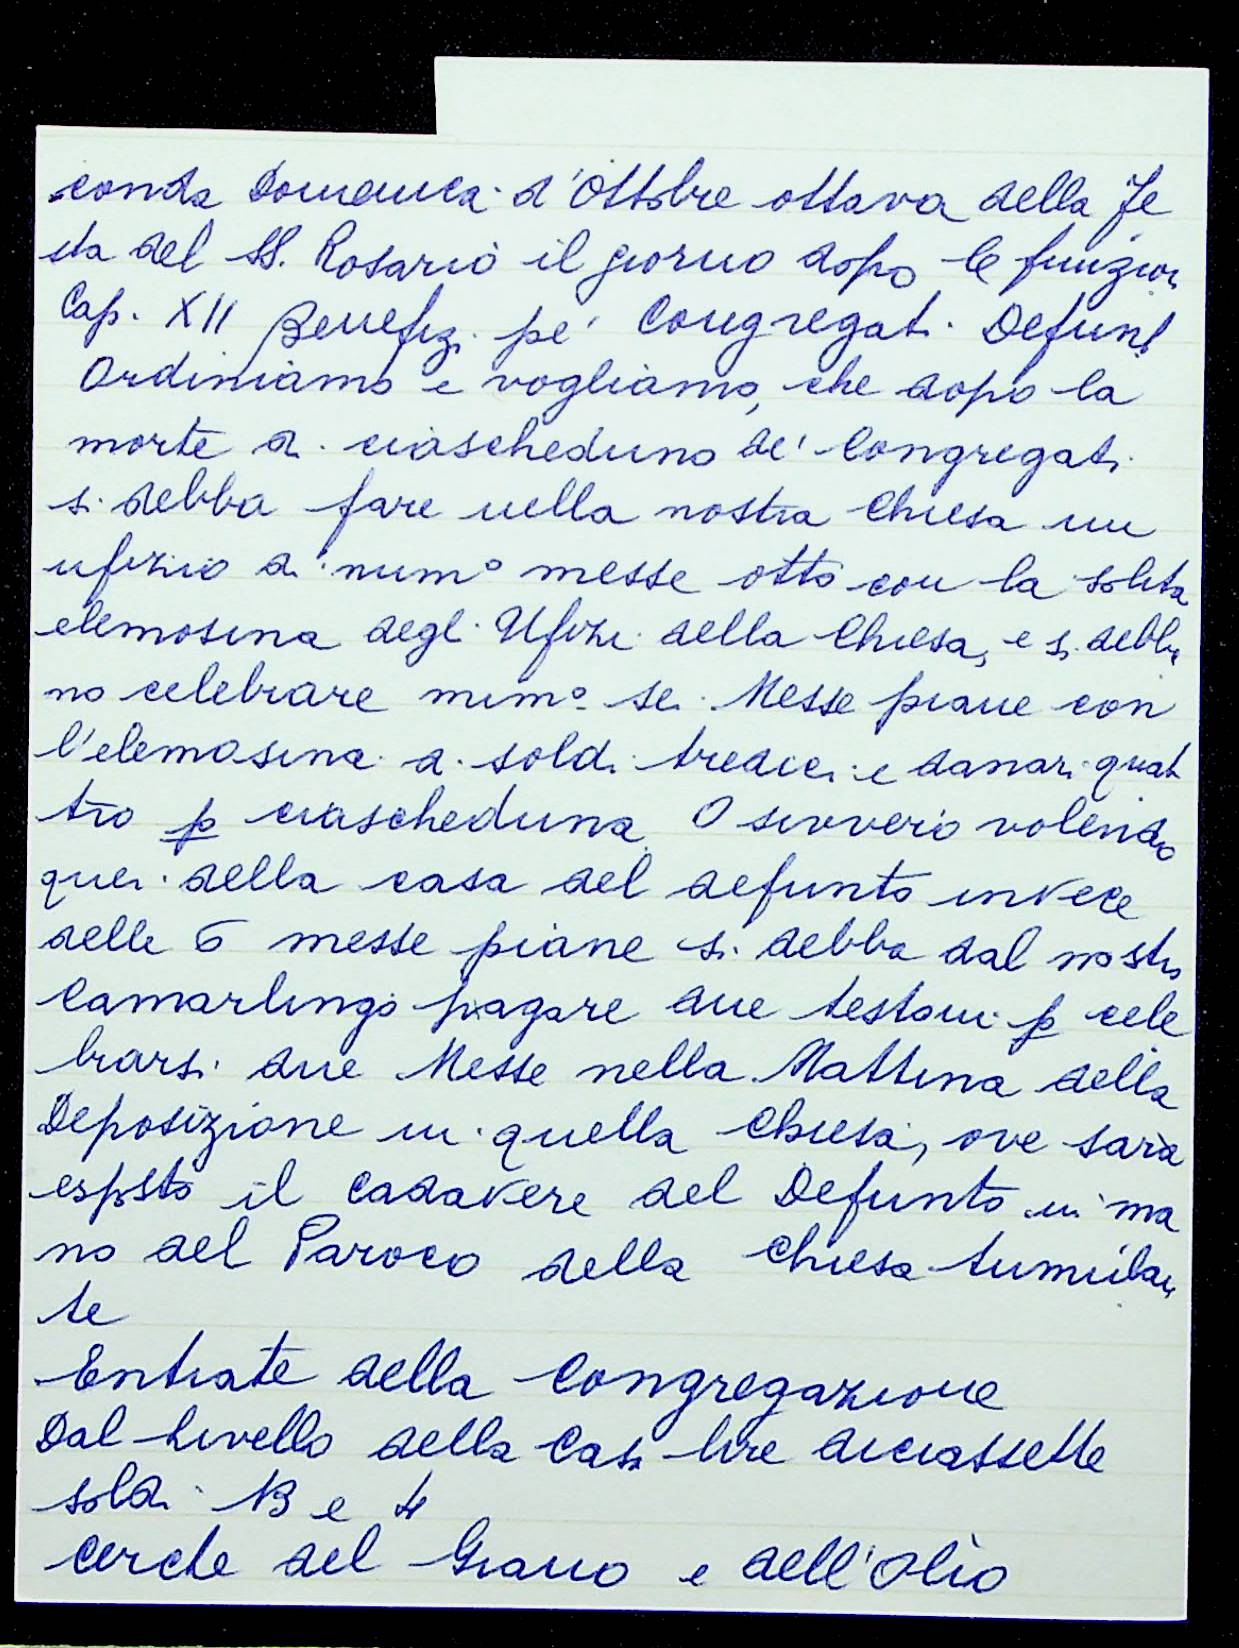 conda Domenica d'Ottobre ottava della Fe
sta del SS. Rosario il giorno dopo le funzion
Cap. XII Benefizi pe' Congregati Defunt
Ordiniamo e vogliamo, che dopo la
morte di ciascheduno de' Congregati
si debba fare nella nostra Chiesa un
ufizio di num° messe otto con la solita
elemosina degl. Ufizi della Chiesa, e si debba
no celebrare num° sei Messe piane con
l'elemosina di soldi tredici e danari quat
tro p ciascheduna O sivvero volendo
quei della casa del defunto invece
delle 6 messe piane si debba dal nostro
Camarlingo pagare due testoni p cele
brarsi due Messe nella Mattina della
Deposizione in quella Chiesa, ove sarà
esposto il cadavere del Defunto in ma
no del Paroco della Chiesa tumulan
te
Entrate della Congregazione
Dal livello della Casa lire diciassette
soldi 13 e 4
cerche del Grano e dell'Olio